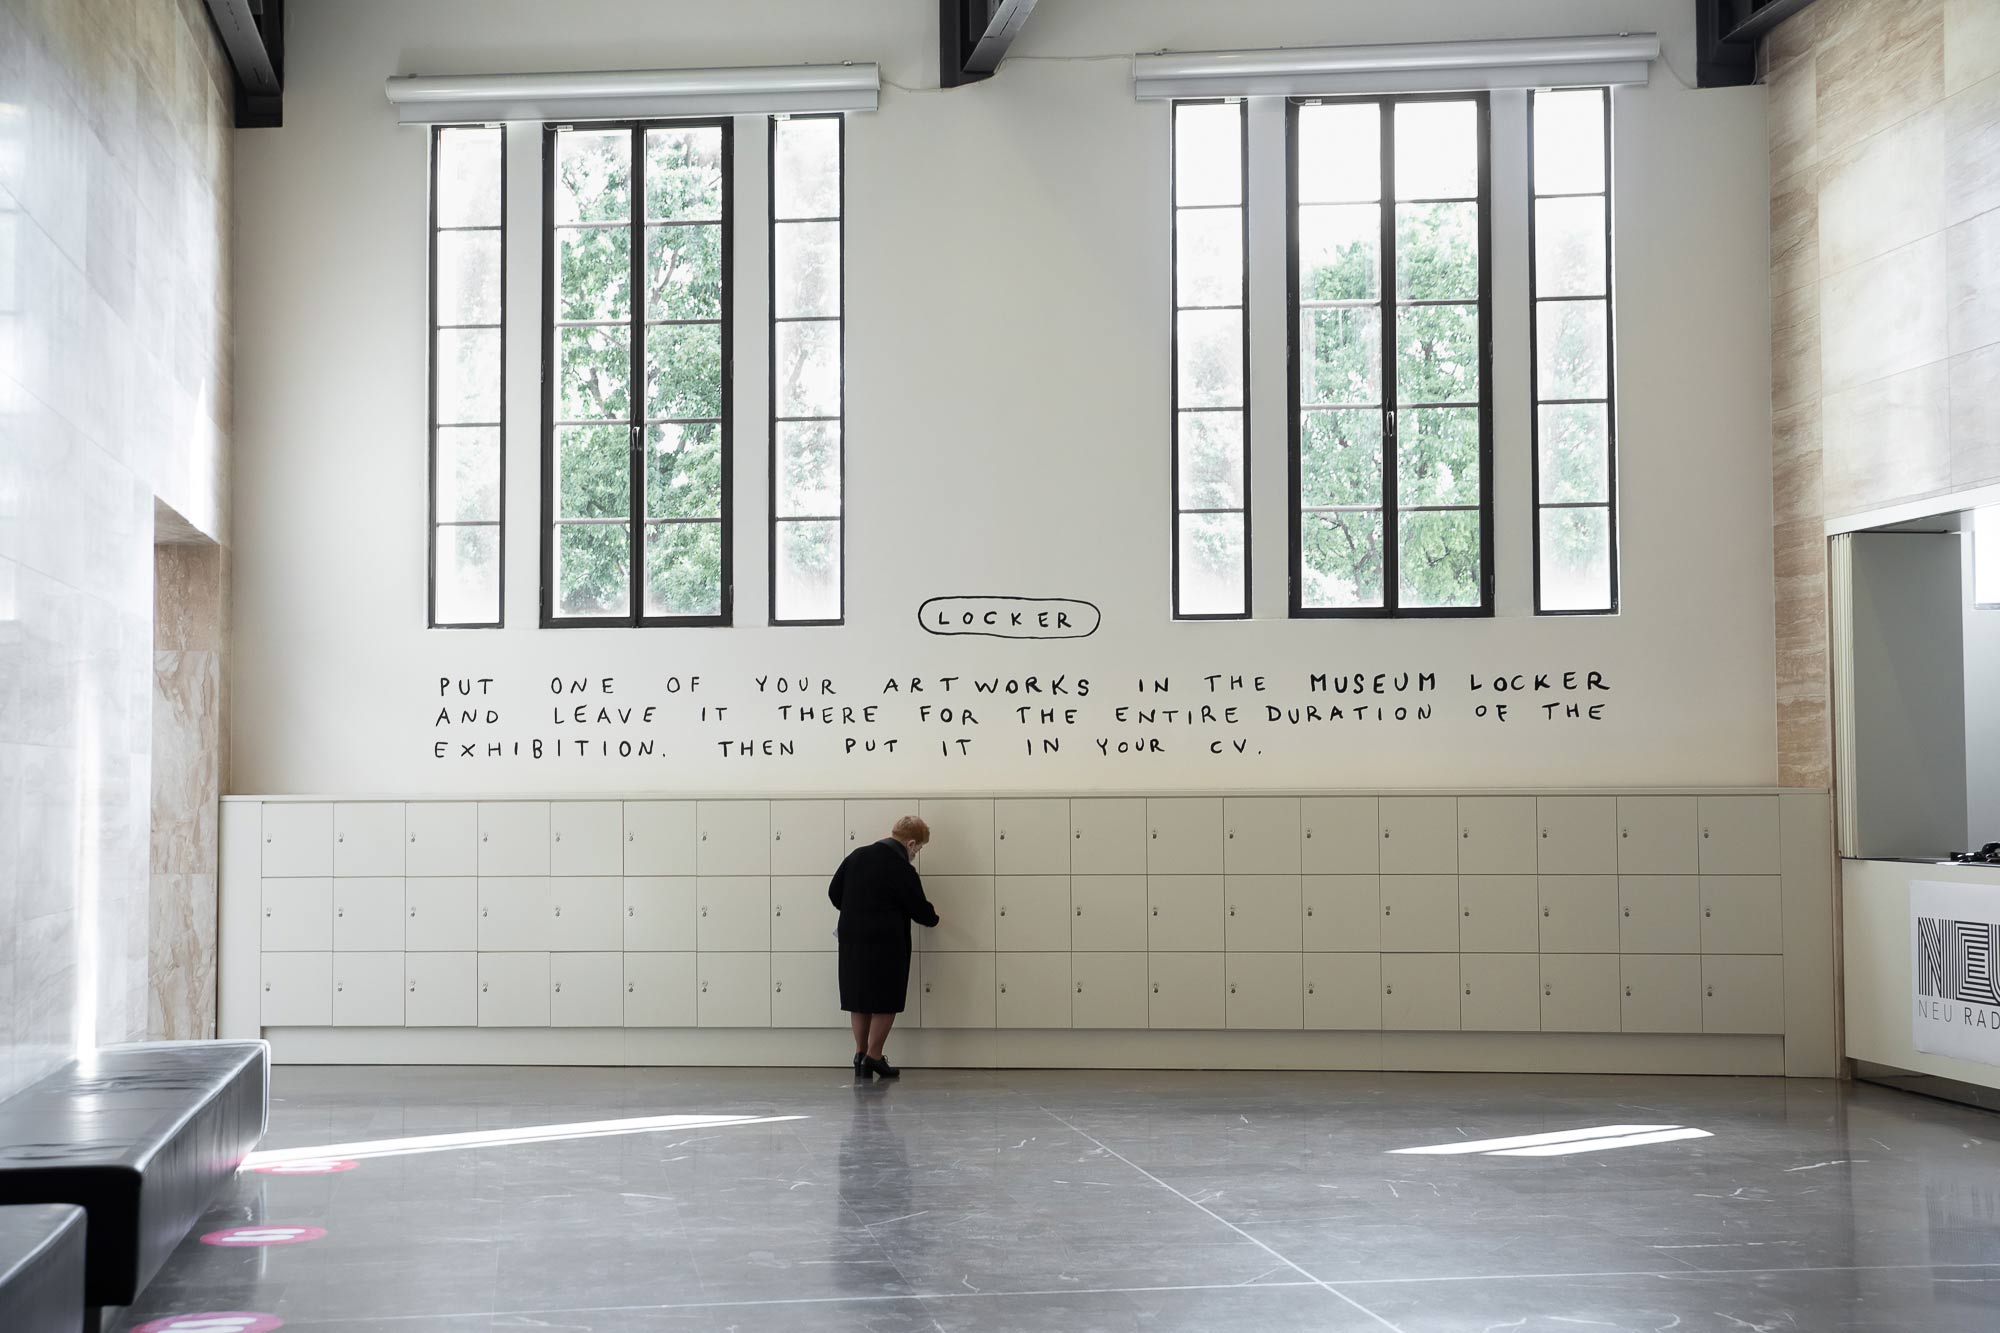 LOCKER
PUT ONE OF YOUR ARTWORKS IN THE MUSEUM LOCKER
AND LEAVE IT THERE FOR THE ENTIRE DURATION OF THE
EXHIBITION. THEN PUT IT IN YOUR CV.
NEU
NEU RAD